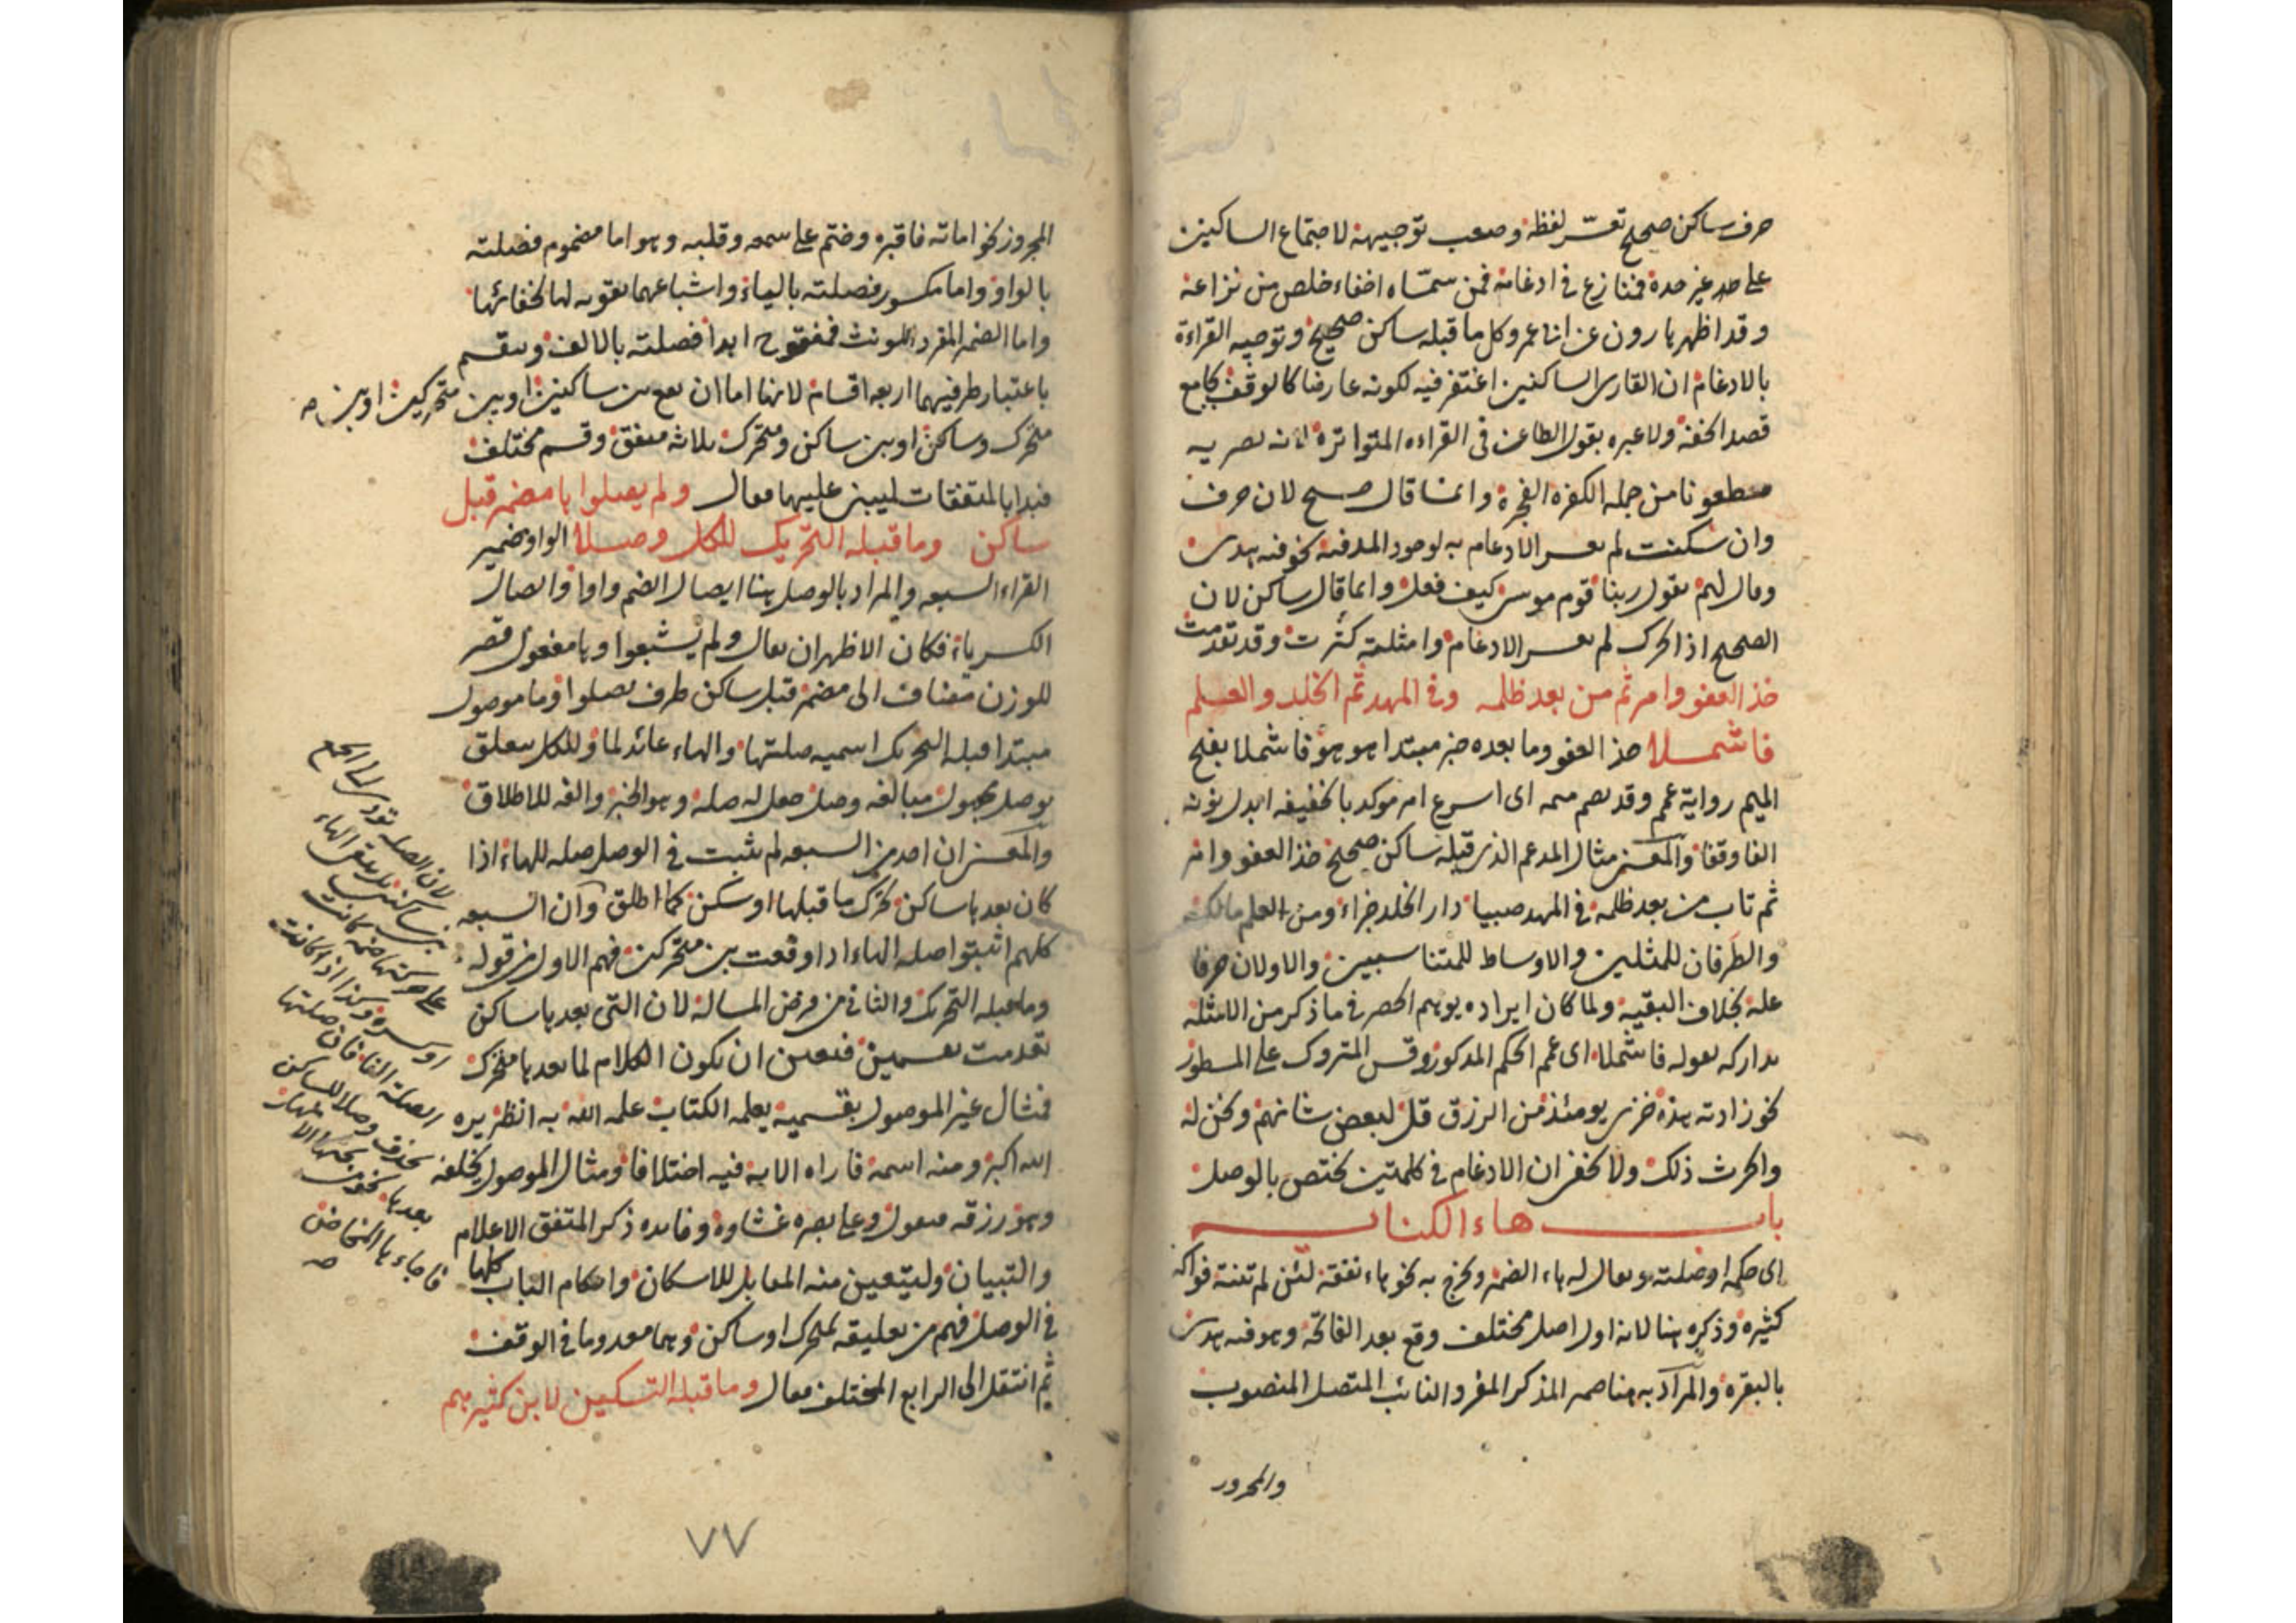 حرف ساكن صحيح تعسّر لفظه وصعب توجيهه لاجتماع الساكنين
على حد غير حده فتنازع فى ادغامه فمن سمّاه اخفاء خلص من نزاعه
وقد اظهر هارون عن ابى عمرو كل ما قبله ساكن صحيح وتوجيه القراءة
بالادغام ان القارى الساكنين اغتفر فيه لكونه عارضا كالوقف بجامع
قصد الخفة ولا عبره بقول الطاعن فى القراءه المتواتره لانه يصر به
مطعونا من جمله الكفره الفجرة وانما قال صحيح لان حرف
وان سكنت لم يعسر الادغام به لوجود المد فيه نحو فيه هدى
وقال لهم يقول ربنا قوم موسى كيف فعل وانما قال ساكن لان
الصحيح اذا تحرك لم يعسر الادغام وامثلته كثرت وقد تقدمت
خذ العفو وامر ثم من بعد ظلمه وفى المهد ثم الخلد والعلم
فاشملا خذ العفو وما بعده خبر مبتدا هو هو فاشملا بفتح
الميم رواية عمم وقد يضم ميمه اى اسرع امر موكد بالخفيفه ابدل نونه
الفا وقفا والمعنى مثال المدغم الذى قبله ساكن صحيح خذ العفو وامر
ثم تاب من بعد ظلمه فى المهد صبيا دار الخلد جزاء ومن العلم مالك
والطرفان للمثلين والاوساط للمتناسبين والاولان حرفا
علة بخلاف البقيه ولما كان ايراده يوهم الحصر فى ما ذكر من الامثله
تداركه بقوله فاشملا اى عمم الحكم المذكور وقس المتروك على المسطور
نحو زادته هذه خزى يومئذ من الرزق قل لبعض شانهم ونحن له
والحرث ذلك ولا يخفى ان الادغام فى كلمتين يختص بالوصل
باب هاء الكناية
اى حكمها وصلته ويقال له هاء الضمير وخرج به نحو هاء نفقه لئن لم تنته فواكه
كثيره وذكره هنا لانه اول اصل مختلف وقع بعد الفاتحة وهو فيه هدى
بالبقره والمراد به هنا ضمير المذكر المفرد الغائب المتصل المنصوب
والمجرور
المجرور نحو اماته فاقبره وختم على سمعه وقلبه وهو اما مضموم فصلته
بالواو واما مكسور فصلته بالياء واشباعهما تقويه لها لخفائها
واما الضمير المفرد المونث فمفتوح ابدا فصلته بالالف وينقسم
باعتبار طرفيهما اربعه اقسام لانها اما ان تقع بين ساكنين او بين متحركين او بين
متحرك وساكن او بين ساكن ومتحرك ثلاثه متفق وقسم مختلف
فبدا بالمتفقات ليبنى عليها فقال ولم يصلوا ها مضمر قبل
ساكن وما قبله التحريك للكل وصلا الواو ضمير
القراء السبعه والمراد بالوصل هنا ايصال الضم واوا وايصال
الكسر ياء فكان الاظهر ان يقال ولم يشبعوا وها مفعول قصر
للوزن مضاف الى مضمر قبل ساكن ظرف يصلوا وما موصول
مبتدا قبله التحريك اسميه صلتها والهاء عائد لما وللكل يتعلق
بوصل مجهول مبالغه وصل جعل له صله وهو الخبر والفه للاطلاق
والمعنى ان احد من السبعه لم يثبت فى الوصل صله للهاء اذا
كان بعدها ساكن تحرك ما قبلها او سكن كما اطلق وان السبعه
كلهم اثبتوا صله الهاء اذا وقعت بين متحركين فهم الاول من قوله
وما قبله التحريك والثانى من فرض المساله لان التى بعدها ساكن
تقدمت بقسمين فتعين ان يكون الكلام لما بعدها متحرك
فمثال غير الموصول بقسميه يعلمه الكتاب علمه الله به انظر يره
الله اكبر ومنه اسمه فاراه الايه فيه اختلافا ومثال الموصول يخلفه
وهو رزقه فيقول وعلى بصره غشاوة وفايده ذكر المتفق الاعلام
والتبيان وليتعين منه المقابل للاسكان واحكام الباب كلها
فى الوصل فهم من تعليقه لمتحرك او ساكن وهما معدوما فى الوقف
ثم انتقل الى الرابع المختلف فقال وما قبله التسكين لابن كثيرهم
لان الصله تودى الى الجمع
بين ساكنين بل يبقى الهاء
على حركتها ضمه كانت
او كسره وكذا اذا كانت
الصله الفا فان صلتها
تحذف وصلا للساكن
بعدها نحو من تحتها الانهار
فاجاءها المخاض
صح
٧٧